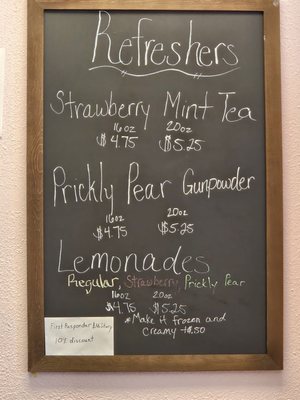 Refreshers
Strawberry Mint Tea
16oz 20oz
$4.75 $5.25
Prickly Pear Gunpowder
16oz 20oz
$4.75 $5.25
Lemonades
Regular, Strawberry, Prickly Pear
16oz 20oz
$4.75 $5.25
*Make it frozen and
creamy +1.50
First Responder & Military
10% discount